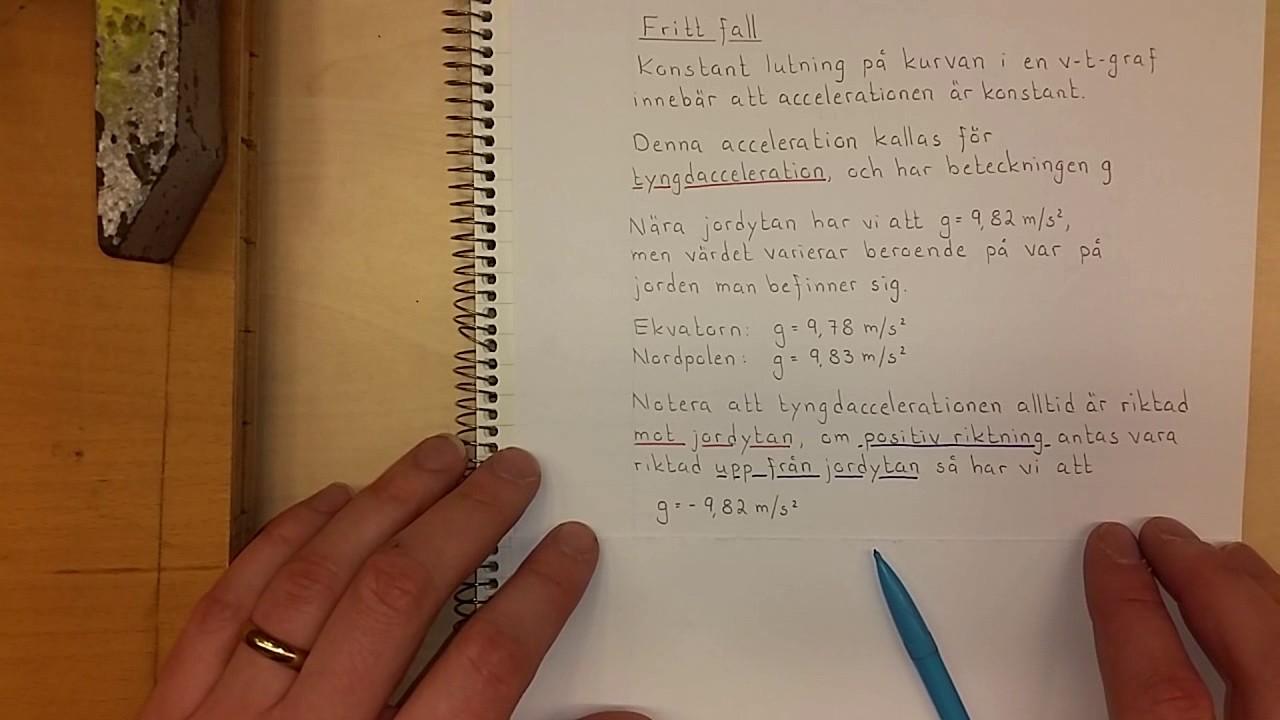 Fritt fall
Konstant lutning på kurvan i en v-t-graf
innebär att accelerationen är konstant.
Denna acceleration kallas för
tyngdacceleration, och har beteckningen g
Nära jordytan har vi att g = 9,82 m/s²,
men värdet varierar beroende på var på
jorden man befinner sig.
Ekvatorn: g = 9,78 m/s²
Nordpolen: g = 9,83 m/s²
Notera att tyngdaccelerationen alltid är riktad
mot jordytan, om positiv riktning antas vara
riktad upp från jordytan så har vi att
g = - 9,82 m/s²